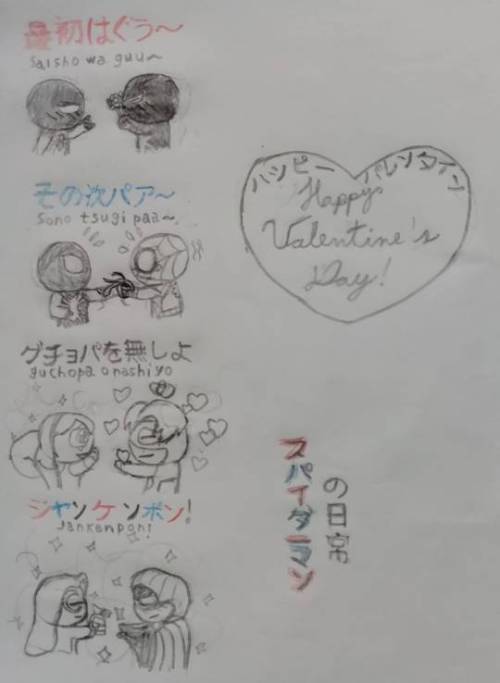 最初はぐぅ～
Saisho wa guu~
その次パァ～
Sono tsugi paa~
グチョパを無しよ
guchopa o nashi yo
ジャンケンポン!
Jankenpon!
ハッピー バレンタイン
Happy
Valentine's
Day!
スパイダーマン
の日常